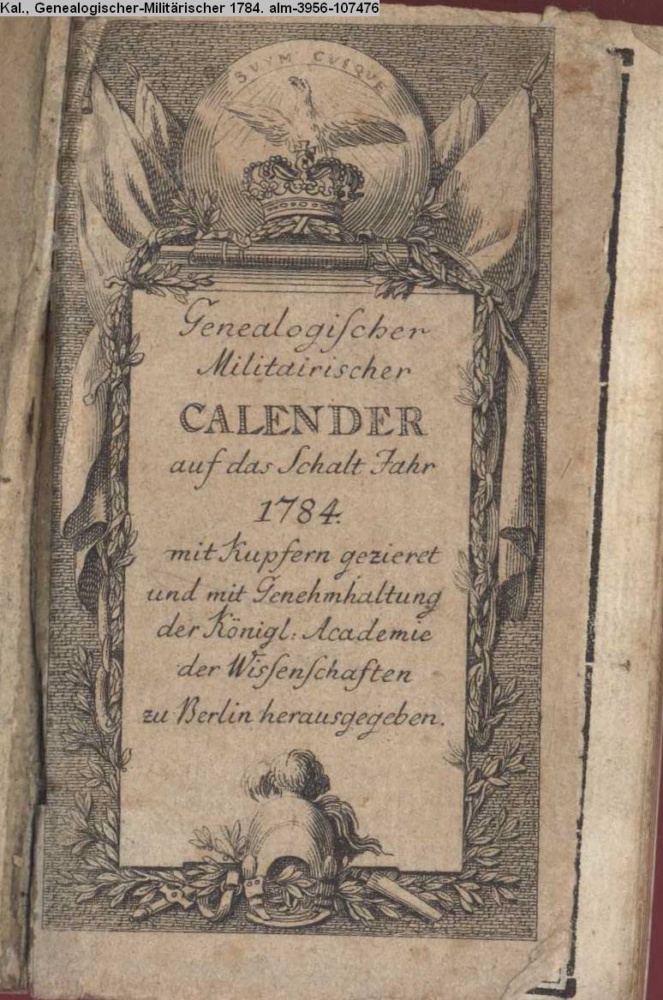 Kal., Genealogischer-Militärischer 1784. alm-3956-107476
SUUM CUIQUE
Genealogiſcher
Militairischer
CALENDER
auf das Schalt Jahr
1784.
mit Kupfern gezieret
und mit Genehmhaltung
der Königl: Academie
der Wiſſenſchaften
zu Berlin herausgegeben.